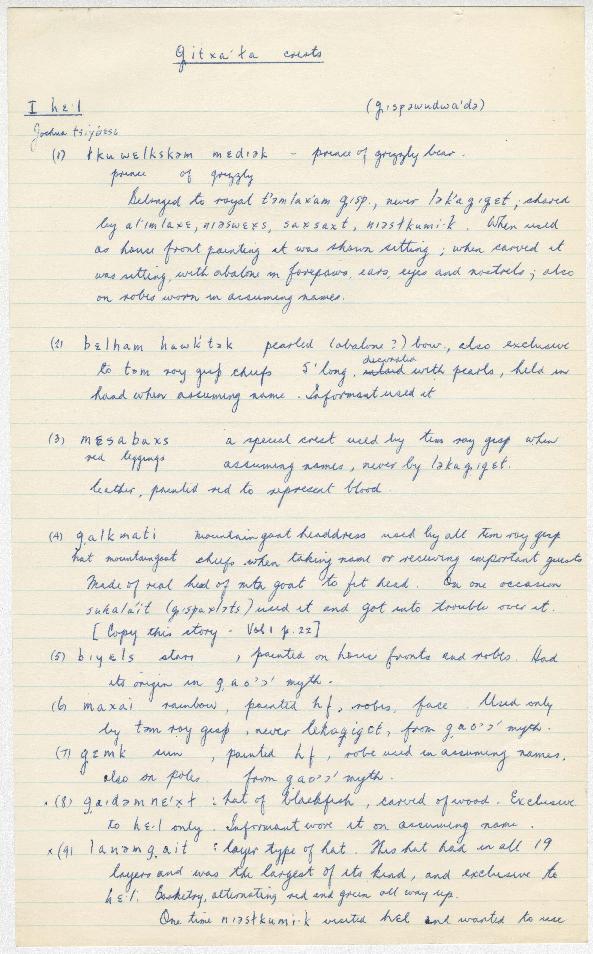 gitxa·ła crests
I hɛ·l (gispəwudwa'də)
Joshua
(1) łku wɛlkskəm mɛdiək - prince of grizzly bear.
prince of grizzly
Belonged to royal t'əmlax'am gisp., never lək'agigɛt; shared
by a'i'mlaxɛ, niəswɛxs, saxsaxt, niəsłkumi·k. When used
as house front painting it was shown sitting; when carved it
was sitting, with abalone in forepaws, ears, eyes and nostrels; also
on robes worn in assuming names.
(2) bɛlham hawk'tək pearled (abalone?) bow, also exclusive
to təm roy gisp chiefs 5' long, decorated with pearls, held in
hand when assuming name. Informant used it
(3) mɛsabaxs a special crest used by tem roy gisp when
red leggings assuming names, never by ləkagigɛt.
leather, painted red to represent blood.
(4) galkmati mountain goat headdress used by all tem roy gisp
hat mountaingoat chiefs when taking name or receiving important guests
Made of real head of mtn goat to fit head. On one occasion
sukala'it (gispaxlɔts) used it and got into trouble over it.
[Copy this story - Vol 1 p. 22]
(5) biyɛls stars, painted on house fronts and robes. Had
its origin in gaoɔ' myth.
(6) maxai rainbow, painted hf, robes, face. Used only
by təm roy gisp, never lɛkagigɛt, from gaoɔ' myth.
(7) gɛmk sun, painted hf, robe used in assuming names,
also on poles. from gaoɔ' myth.
(8) gaidəmnɛ'xł : hat of blackfish, carved of wood. Exclusive
to hɛ·l only. Informant wore it on assuming name.
x (9) lanəmgait : layer type of hat. This hat had in all 19
layers and was the largest of its kind, and exclusive to
hɛ·l. Basketry, alternating red and green all way up.
One time niəsłkumi·k visited hɛl and wanted to use